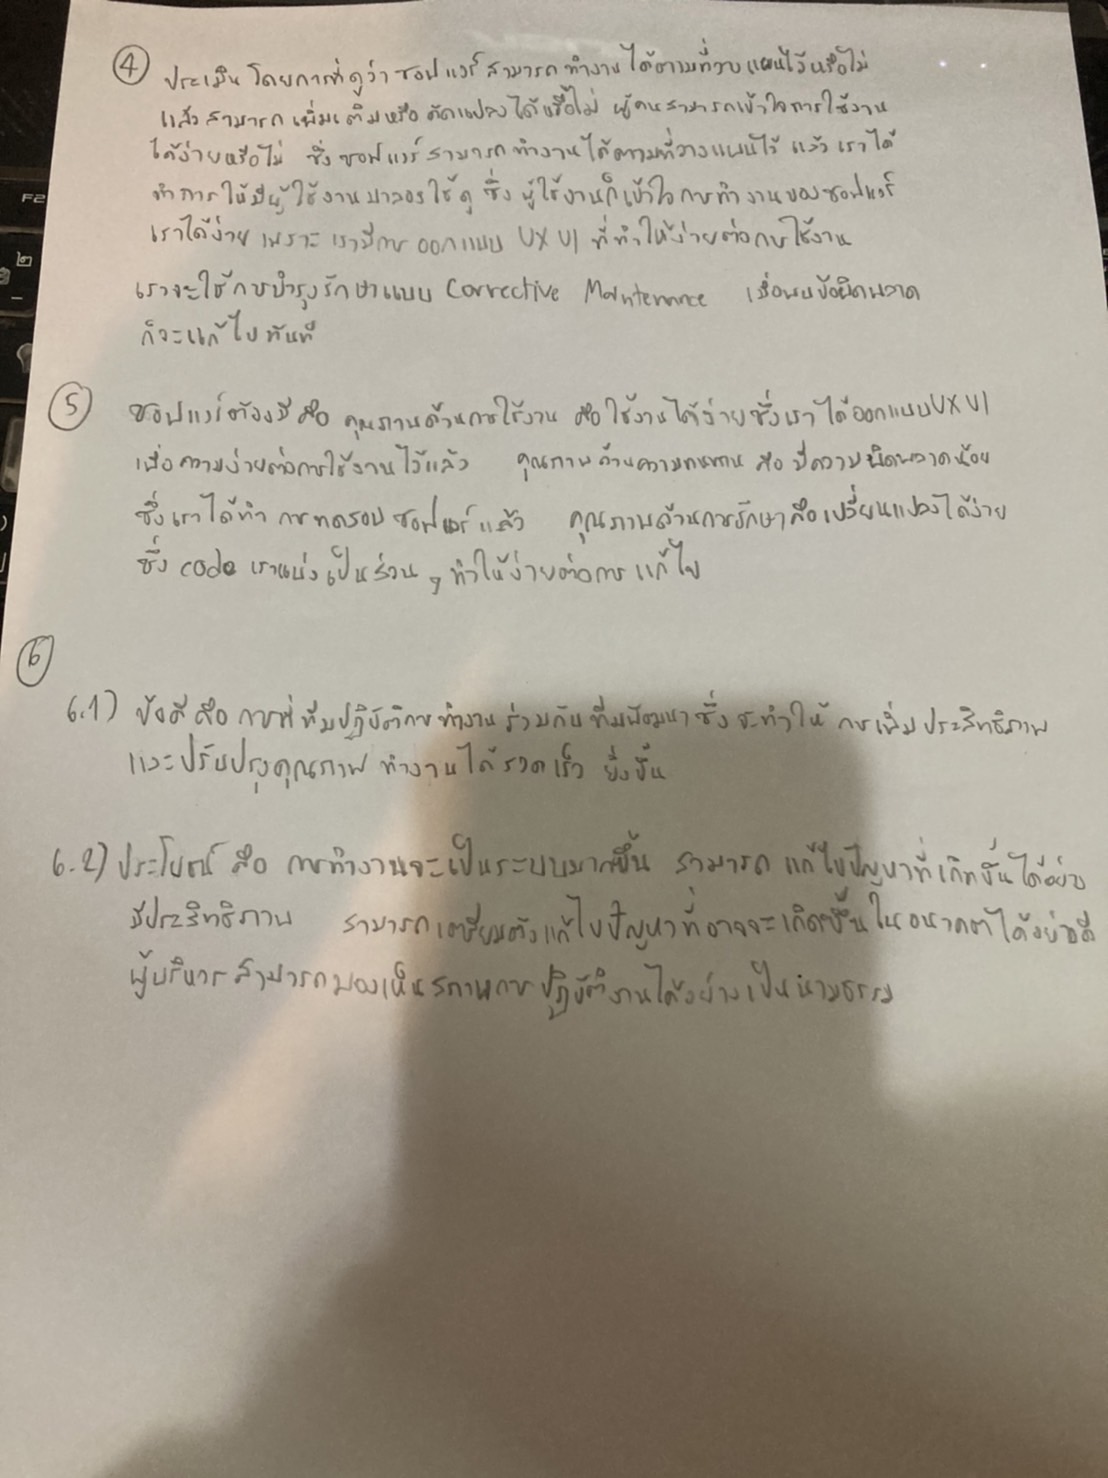 ④ ประเมิน โดยการที่ดูว่า ซอฟแวร์ สามารถ ทำงาน ได้ตามที่วางแผนไว้หรือไม่
แล้ว สามารถ เพิ่มเติมหรือ ดัดแปลง ได้หรือไม่ ผู้คนสามารถเข้าใจการใช้งาน
ได้ง่ายหรือไม่ ซึ่ง ซอฟแวร์ สามารถ ทำงานได้ตามที่วางแผนไว้ แล้ว เราได้
ทำการ ให้มีผู้ใช้งาน มาลองใช้ ดู ซึ่ง ผู้ใช้งานก็เข้าใจ การทำงานของซอฟแวร์
เราได้ง่าย เพราะ เรามีการ ออกแบบ UX UI ที่ทำให้ง่ายต่อการใช้งาน
เราจะใช้การบำรุงรักษาแบบ Corrective Maintenance เมื่อพบข้อผิดพลาด
ก็จะแก้ไขทันที
⑤ ซอฟแวร์ต้องมี คือ คุณภาพด้านการใช้งาน คือ ใช้งานได้ง่ายซึ่งเราได้ออกแบบ UX UI
เพื่อความง่ายต่อการใช้งานไว้แล้ว คุณภาพด้านความทนทาน คือ มีความผิดพลาดน้อย
ซึ่งเราได้ทำ การทดสอบ ซอฟแวร์แล้ว คุณภาพด้านการรักษาคือเปลี่ยนแปลงได้ง่าย
ซึ่ง code เราแบ่งเป็นส่วน ๆ ทำให้ง่ายต่อการ แก้ไข
⑥
6.1) ข้อดีคือ การที่ทีมปฏิบัติการทำงานร่วมกับทีมพัฒนา ซึ่งจะทำให้ การเพิ่มประสิทธิภาพ
และปรับปรุงคุณภาพ ทำงานได้รวดเร็ว ยิ่งขึ้น
6.2) ประโยชน์ คือ การทำงานจะเป็นระบบมากขึ้น สามารถ แก้ไขปัญหาที่เกิดขึ้นได้อย่าง
มีประสิทธิภาพ สามารถเตรียมตัวแก้ไขปัญหาที่อาจจะเกิดขึ้นในอนาคตได้อย่างดี
ผู้บริหารสามารถมองเห็นสภาพการปฏิบัติงานได้อย่างเป็นนามธรรม
F2